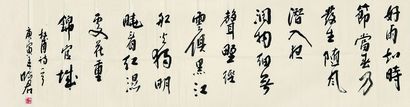 好雨知時
節當春乃
發生隨風
潛入夜
潤物細無
聲野徑
雲俱黑江
船火獨明
曉看紅濕
處花重
錦官城
杜甫詩一首
庚寅